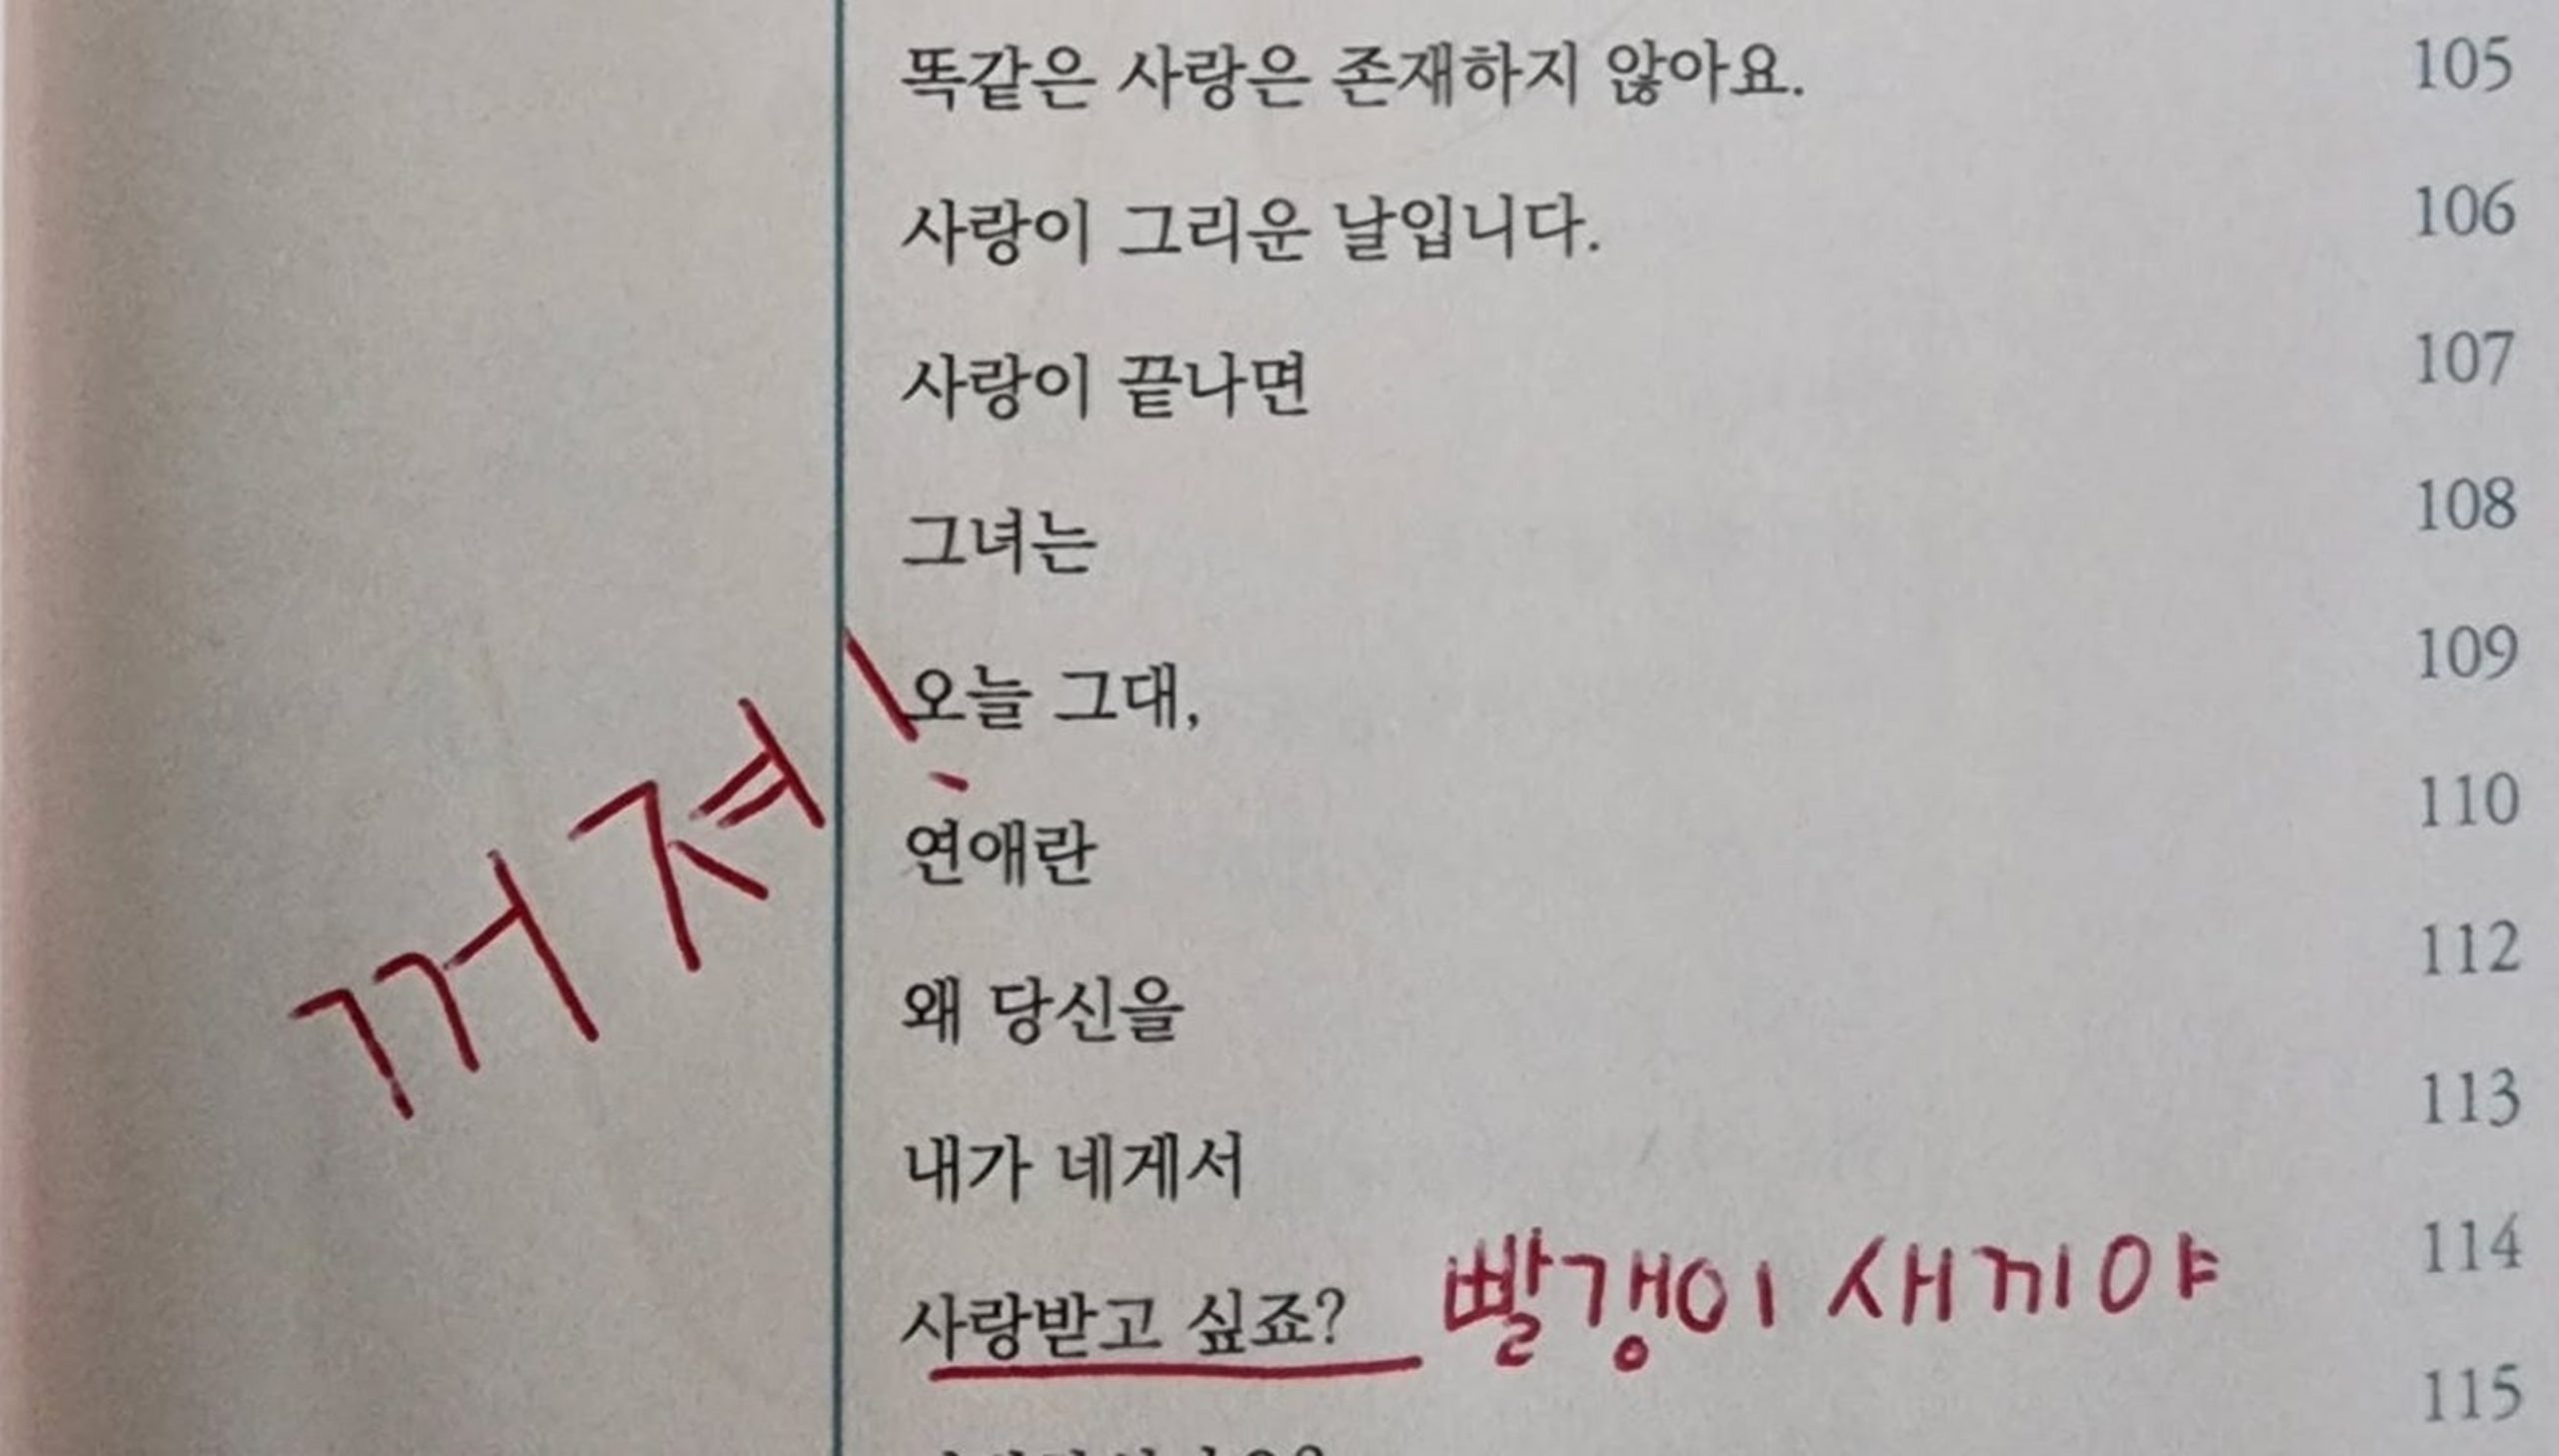 똑같은 사랑은 존재하지 않아요. 105
사랑이 그리운 날입니다. 106
사랑이 끝나면 107
그녀는 108
오늘 그대, 109
꺼져!
연애란 110
왜 당신을 112
내가 네게서 113
사랑받고 싶죠? 114
빨갱이 새끼야
115